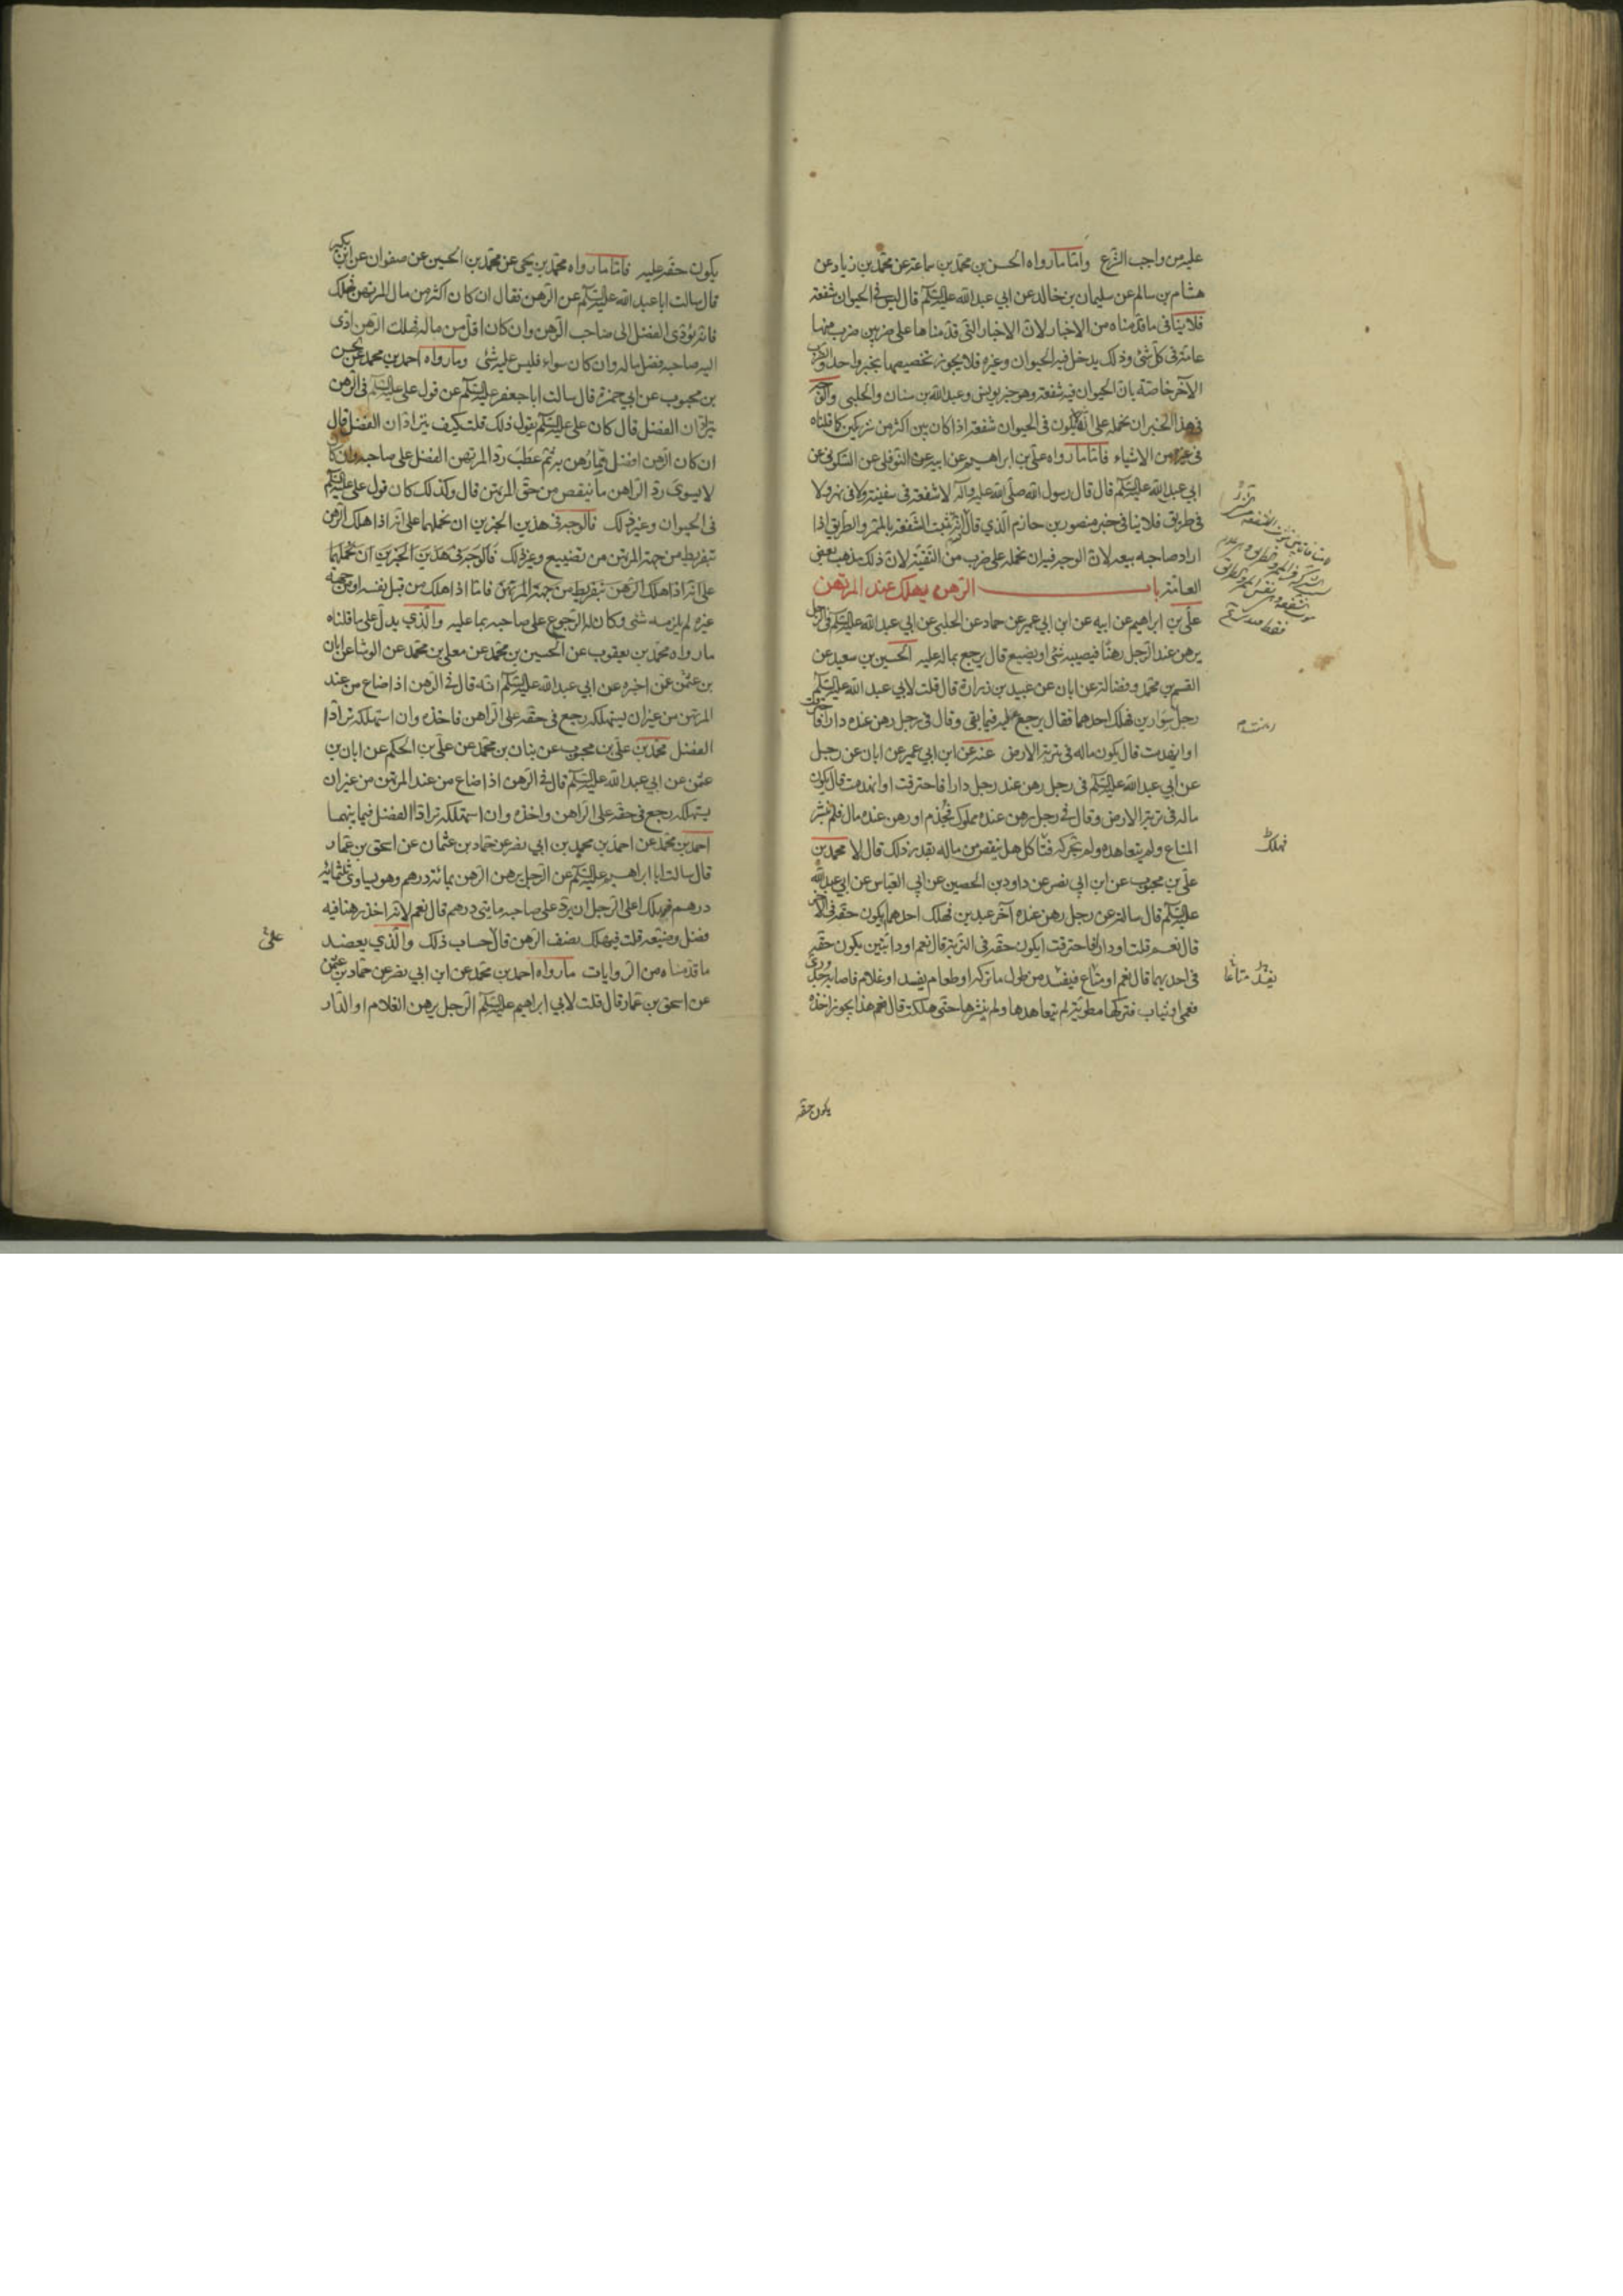 عليه من واجب الشرع وامّا ما رواه الحسن بن محمّد بن سماعة عن محمّد بن زياد عن
هشام بن سالم عن سليمان بن خالد عن ابي عبد الله عليه السّلم قال ليس في الحيوان شفعة
فلا ينافي ما قدّمناه من الاخبار لانّ الاخبار التي قدّمناها على ضربين ضرب منها
عامّة في كلّ شئ وذلك يدخل فيه الحيوان وغيره فلا يجوز تخصيصها بخبر واحد والضرب
الآخر خاصّة بانّ الحيوان فيه شفعة وهو خبر يونس وعبد الله بن سنان والحلبي والوجه
في هذا الخبر ان نحمله على انّه لا يكون في الحيوان شفعة اذا كان بين اكثر من شريكين كما قلناه
في غيره من الاشياء فامّا ما رواه عليّ بن ابراهيم عن ابيه عن النوفلي عن السّكوني عن
ابي عبد الله عليه السّلم قال قال رسول الله صلّى الله عليه وآله لا شفعة في سفينة ولا في نهر ولا
في طريق فلا ينافي خبر منصور بن حازم الّذي قال انّه تثبت الشّفعة بالممرّ والطّريق اذا
اراد صاحبه بيعه لانّ الوجه فيه ان نحمله على ضرب من التّقيّة لانّ ذلك مذهب بعض
العامّة باب الرّهن يهلك عند المرتهن
عليّ بن ابراهيم عن ابيه عن ابن ابي عمير عن حماد عن الحلبي عن ابي عبد الله عليه السّلم في الرجل
يرهن عند الرّجل رهنًا فيصيبه شئ او يضيع قال يرجع بماله عليه الحسين بن سعيد عن
القسم بن محمّد وفضالة عن ابان عن عبيد بن زرارة قال قلت لابي عبد الله عليه السّلم
رجل سوارين فهلك احدهما فقال يرجع عليه فيما بقي وقال في رجل رهن عنده دارا فاحترقت
او انهدمت قال يكون ماله في تربة الارض عنه عن ابن ابي عمير عن ابان عن رجل
عن ابي عبد الله عليه السّلم في رجل رهن عند رجل دارا فاحترقت او انهدمت قال يكون
ماله في تربة الارض وقال في رجل رهن عنده مملوك فجُذم او رهن عنده مال فلم ينشر
المتاع ولم يتعاهده ولم يحركه فتأكل هل ينقص من ماله بقدر ذلك قال لا محمّد بن
عليّ بن محبوب عن ابن ابي نصر عن داود بن الحصين عن ابي العباس عن ابي عبد الله
عليه السّلم قال سالته عن رجل رهن عنده آخر عبدين فهلك احدهما يكون حقه في الآخر
قال نعم قلت او دارا فاحترقت ايكون حقه في التربة قال نعم او دابّتين يكون حقه
في احديهما قال نعم او متاع فيفسد من طول ما تركه او طعام يفسد او غلام فاصابه جدري
فعمي او ثياب فتركها مطويّة لم يتعاهدها ولم ينشرها حتى هلكت قال نعم هذا يجوز اخذه
رهنته
فهلك
يفسد متاعا
يكون حقه
يكون حقه عليه فامّا ما رواه محمّد بن يحيى عن محمّد بن الحسين عن صفوان عن ابن بكير
قال سالت ابا عبد الله عليه السّلم عن الرّهن فقال ان كان اكثر من مال المرتهن فهلك
فانّه يؤدّي الفضل الى صاحب الرّهن وان كان اقلّ من ماله فهلك الرّهن ادّى
اليه صاحبه فضل ماله وان كان سواء فليس عليه شئ وما رواه احمد بن محمد عن الحسن
بن محبوب عن ابي حمزة قال سالت ابا جعفر عليه السّلم عن قول علي عليه السّلم في الرّهن
يترادّان الفضل قال كان علي عليه السّلم يقول ذلك قلت كيف يترادّان الفضل قال
ان كان الرّهن افضل فيما رُهن به ثم عطب ردّ المرتهن الفضل على صاحبه وان كان
لا يسوى ردّ الرّاهن ما ينقص من حقّ المرتهن قال وكذلك كان قول علي عليه السّلم
في الحيوان وغير ذلك فالوجه في هذين الخبرين ان نحملهما على انّه اذا هلك الرّهن
بتفريط من جهة المرتهن من تضييع وغير ذلك فالوجه في هذين الخبرين ان نحملهما
على انّه اذا هلك الرّهن بتفريط من جهة المرتهن فامّا اذا هلك من قبل نفسه او من جهة
غيره لم يلزمه شئ وكان له الرّجوع على صاحبه بما عليه والّذي يدلّ على ما قلناه
ما رواه محمّد بن يعقوب عن الحسين بن محمّد عن معلى بن محمّد عن الوشا عن ابان
بن عثمن عمّن اخبره عن ابي عبد الله عليه السّلم انّه قال في الرّهن اذا ضاع من عند
المرتهن من غير ان يستهلكه رجع في حقّه على الرّاهن فاخذه وان استهلكه ترادّا
الفضل محمّد بن عليّ بن محبوب عن بنان بن محمّد عن عليّ بن الحكم عن ابان بن
عثمن عن ابي عبد الله عليه السّلم قال في الرّهن اذا ضاع من عند المرتهن من غير ان
يستهلكه رجع في حقّه على الرّاهن واخذه وان استهلكه ترادّا الفضل فيما بينهما
احمد بن محمّد عن احمد بن محمّد بن ابي نصر عن حمّاد بن عثمان عن اسحق بن عمّار
قال سالت ابا ابراهيم عليه السّلم عن الرّجل يرهن الرّهن بمائة درهم وهو يساوي ثلثمائة
درهم فيهلك اعلى الرّجل ان يردّ على صاحبه مايتي درهم قال نعم لانّه اخذ رهنا فيه
فضل وضيّعه قلت فيهلك نصف الرّهن قال حساب ذلك والّذي يعضد
ما قدّمناه من الرّوايات ما رواه احمد بن محمّد عن ابن ابي نصر عن حمّاد بن عثمن
عن اسحق بن عمّار قال قلت لابي ابراهيم عليه السّلم الرّجل يرهن الغلام او الدّار
على